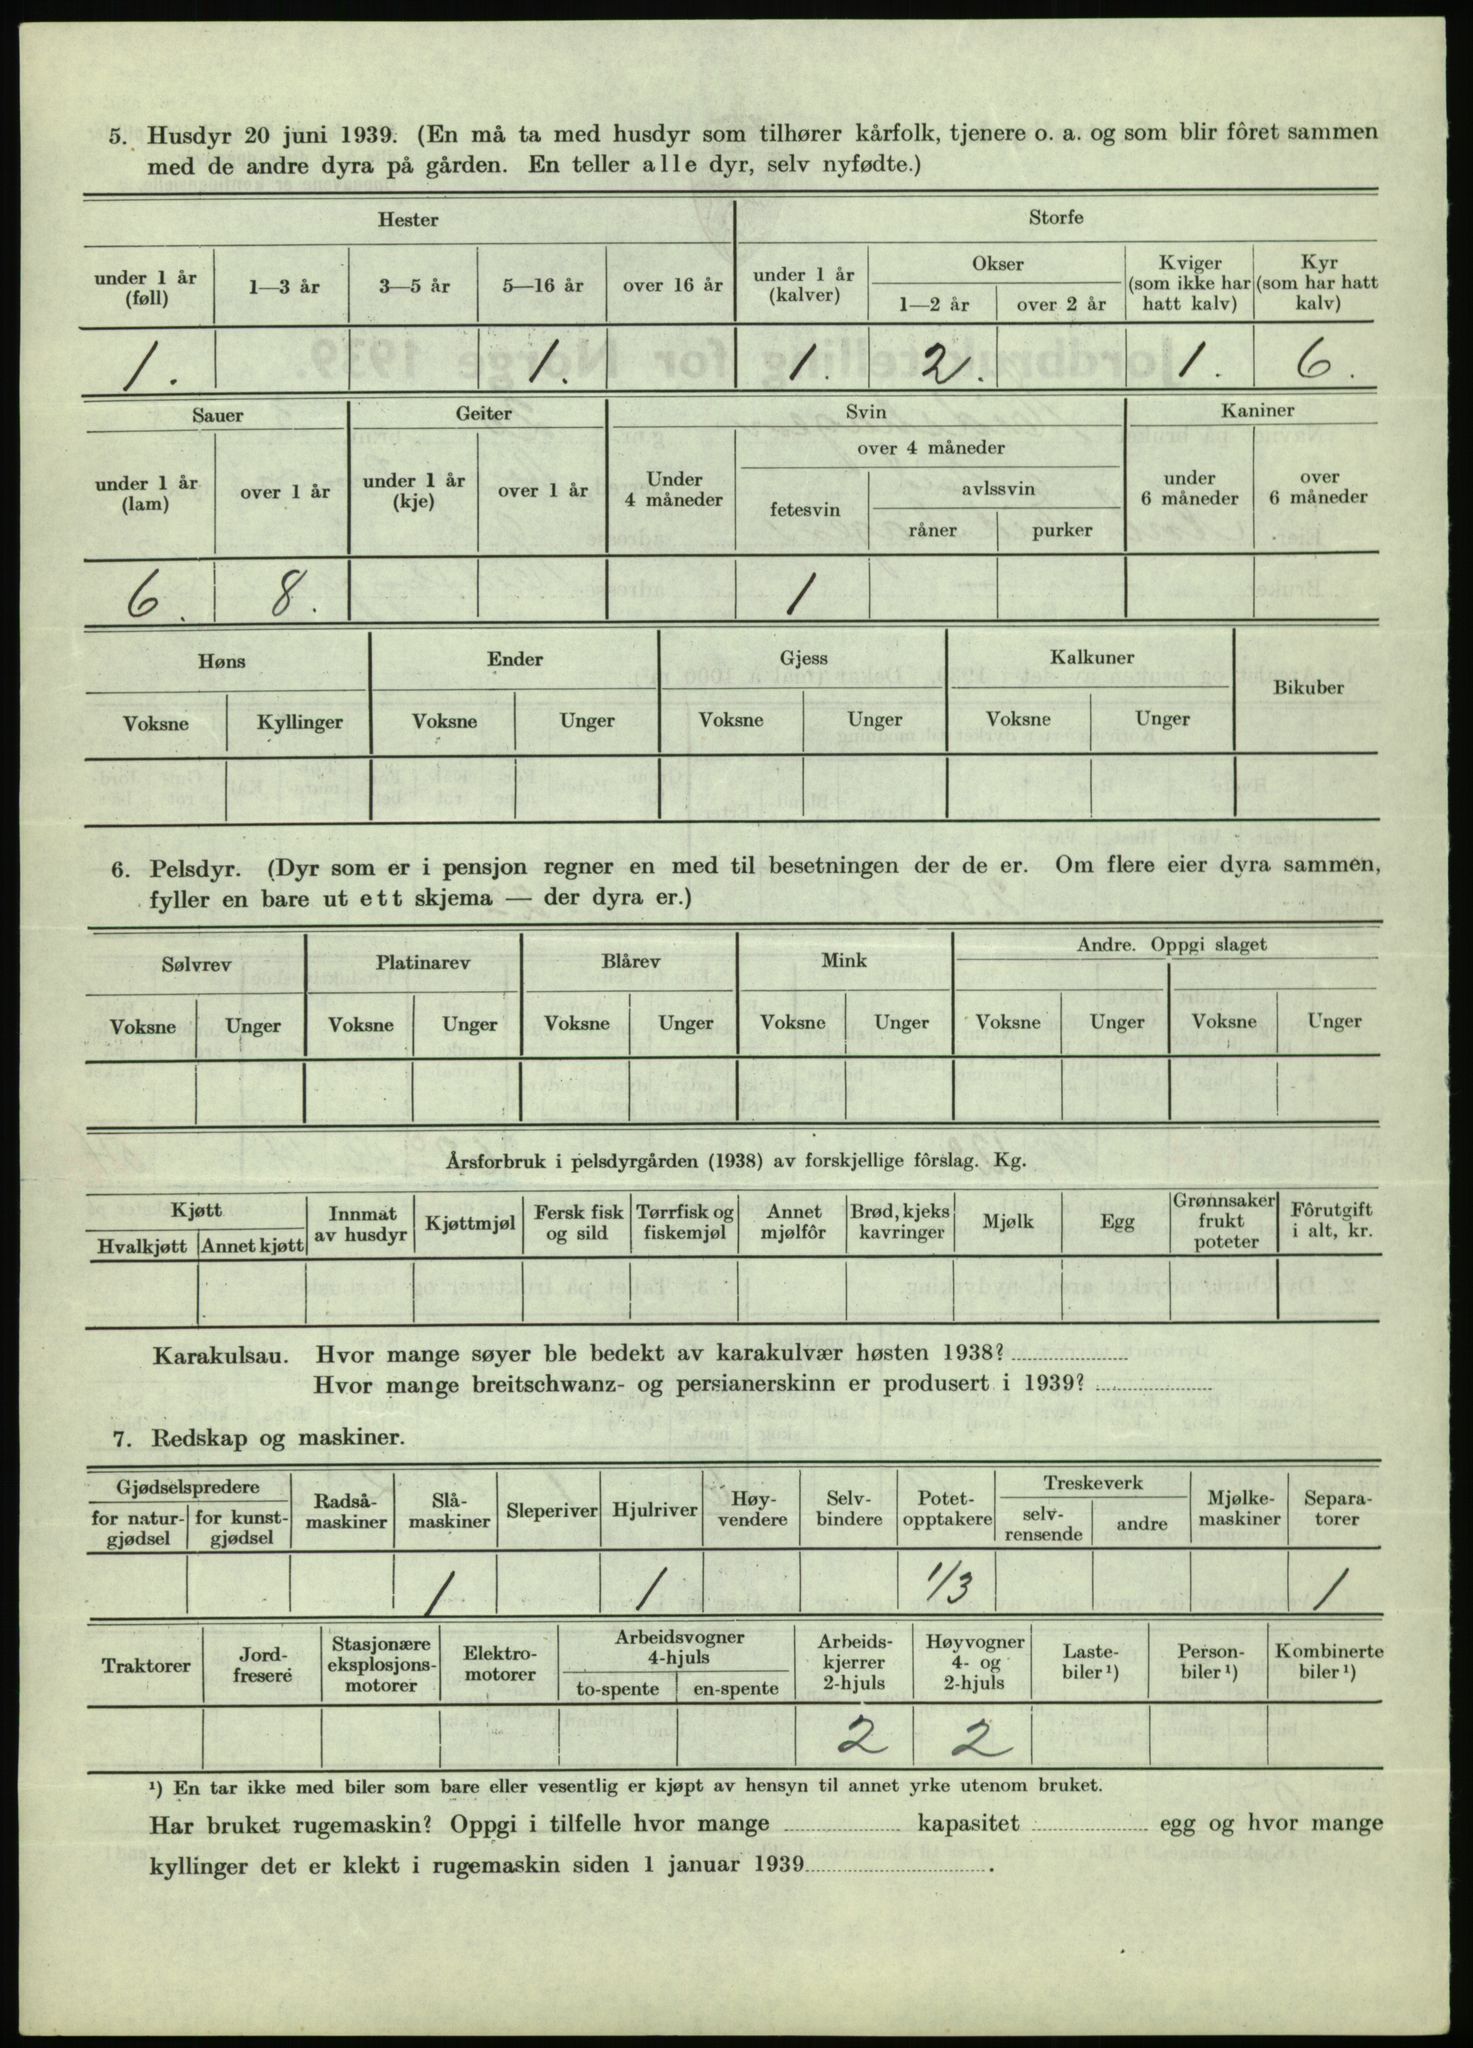 5. Husdyr 20 juni 1939. (En må ta med husdyr som tilhører kårfolk, tjenere o. a. og som blir fôret sammen
med de andre dyra på gården. En teller alle dyr, selv nyfødte.)
Hester Storfe
under 1 år (føll) 1—3 år 3—5 år 5—16 år over 16 år under 1 år (kalver) Okser 1—2 år over 2 år Kviger (som ikke har hatt kalv) Kyr (som har hatt kalv)
1. 1. 1. 2. 1. 6.
Sauer Geiter Svin Kaniner
under 1 år (lam) over 1 år under 1 år (kje) over 1 år Under 4 måneder over 4 måneder fetesvin avlssvin råner purker under 6 måneder over 6 måneder
6. 8. 1
Høns Ender Gjess Kalkuner Bikuber
Voksne Kyllinger Voksne Unger Voksne Unger Voksne Unger
6. Pelsdyr. (Dyr som er i pensjon regner en med til besetningen der de er. Om flere eier dyra sammen,
fyller en bare ut ett skjema — der dyra er.)
Sølvrev Platinarev Blårev Mink Andre. Oppgi slaget
Voksne Unger Voksne Unger Voksne Unger Voksne Unger Voksne Unger Voksne Unger
Årsforbruk i pelsdyrgården (1938) av forskjellige fôrslag. Kg.
Kjøtt Hvalkjøtt Annet kjøtt Innmat av husdyr Kjøttmjøl Fersk fisk og sild Tørrfisk og fiskemjøl Annet mjølfôr Brød, kjeks kavringer Mjølk Egg Grønnsaker frukt poteter Fôrutgift i alt, kr.
Karakulsau. Hvor mange søyer ble bedekt av karakulvær høsten 1938?
Hvor mange breitschwanz- og persianerskinn er produsert i 1939?
7. Redskap og maskiner.
Gjødselspredere for natur-gjødsel for kunst-gjødsel Radså-maskiner Slå-maskiner Sleperiver Hjulriver Høy-vendere Selv-bindere Potet-opptakere Treskeverk selv-rensende andre Mjølke-maskiner Separa-torer
1 1 1/3 1
Traktorer Jord-fresere Stasjonære eksplosjons-motorer Elektro-motorer Arbeidsvogner 4-hjuls to-spente en-spente Arbeids-kjerrer 2-hjuls Høyvogner 4- og 2-hjuls Laste-biler ¹) Person-biler ¹) Kombinerte biler ¹)
2 2
¹) En tar ikke med biler som bare eller vesentlig er kjøpt av hensyn til annet yrke utenom bruket.
Har bruket rugemaskin? Oppgi i tilfelle hvor mange kapasitet egg og hvor mange
kyllinger det er klekt i rugemaskin siden 1 januar 1939 .